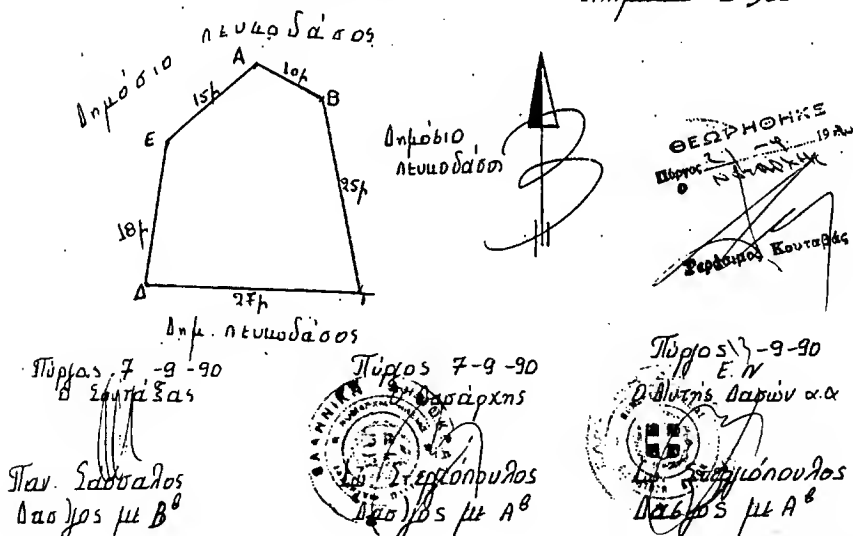 Δημόσιο πευκοδάσος
Α
10μ
Β
15μ
Ε
25μ
18μ
Δ
27μ
Γ
Δημ. πευκοδάσος
Δημόσιο
πευκοδάσος
ΘΕΩΡΗΘΗΚΕ
Πύργος
19
Ο
Γεράσιμος Κουταβάς
Πύργος 7-9-90
Ο Συντάξας
Παν. Σάσσαλος
Δασ/γος με Ββ
Πύργος 7-9-90
Ο Δασάρχης
ΕΛΛΗΝΙΚΗ
Στεργιόπουλος
Δασ/γος με Αβ
Πύργος -9-90
Ε.Ν
Ο Δ/ντής Δασών α.α
Δασ/γος με Αβ